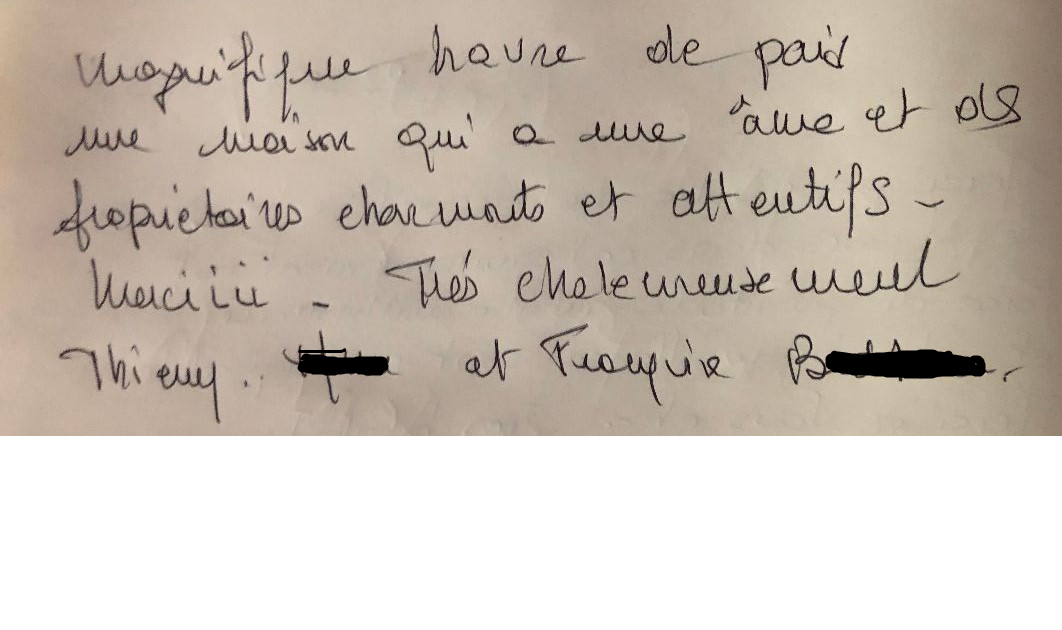 Magnifique havre de paix
une maison qui a une âme et des
propriétaires charmants et attentifs -
Merciiii - Très chaleureusement
Thierry. et Françoise B